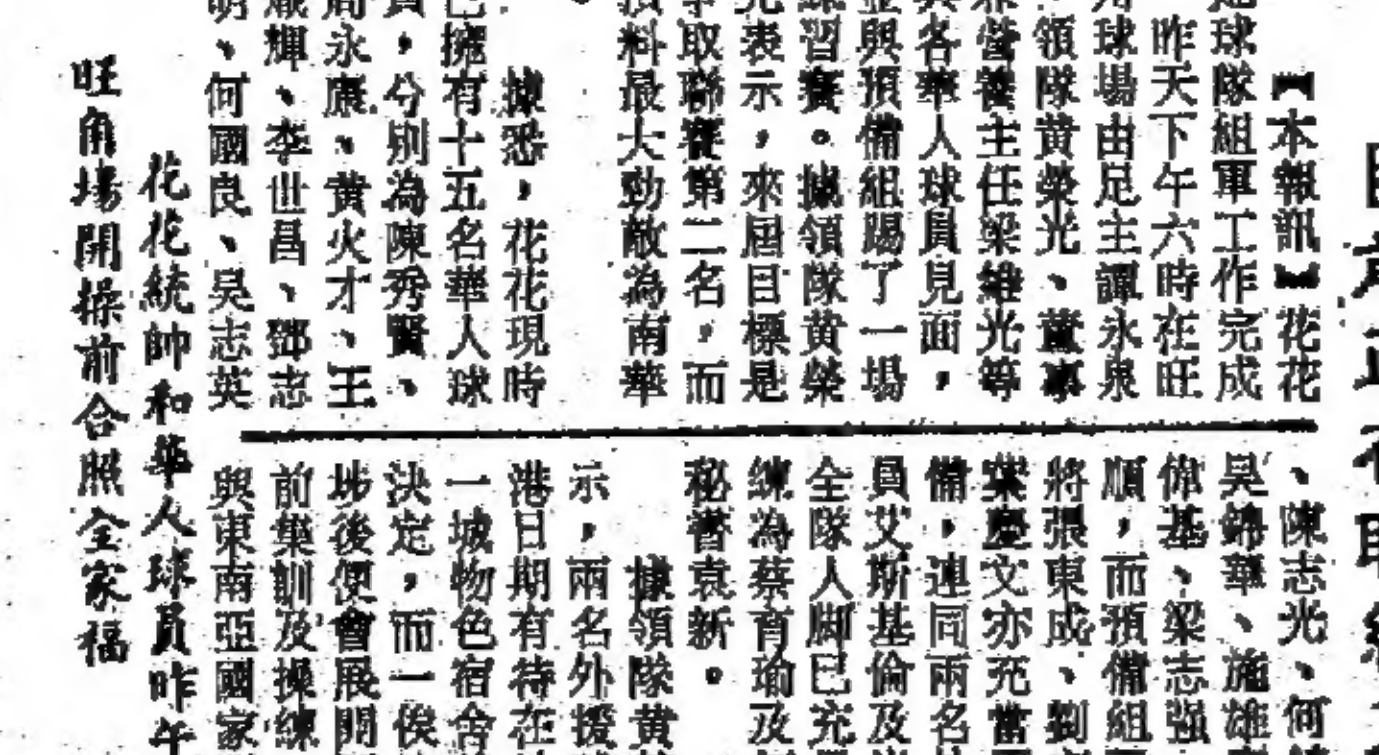 【本報訊】花花
球隊組軍工作完成
昨天下午六時在旺
球場由足主譚永泉
領隊黃榮光、董
營養主任梁維光等
各華人球員見面，
並與預備組踢了一場
練習賽。據領隊黃榮
光表示，來屆目標是
爭取聯賽第二名，而
預料最大勁敵為南華
。
據悉，花花現時
已擁有十五名華人球
員，分別為陳秀賢、
周永康、黃火才、王
輝、李世昌、鄧志
明、何國良、吳志英
、陳志光、何
吳錦華、施雄
偉基、梁志強
順，而預備組
將張東成、劉
葉慶文亦充當
備，連同兩名
員艾斯基倫及
全隊人脚已充
練為蔡育瑜及
秘書袁新。
據領隊黃
示，兩名外援
港日期有待在
一城物色宿舍
決定，而一俟
埗後便會展開
前集訓及操練
與東南亞國家
花花統帥和華人球員昨午
旺角場開操前合照全家福